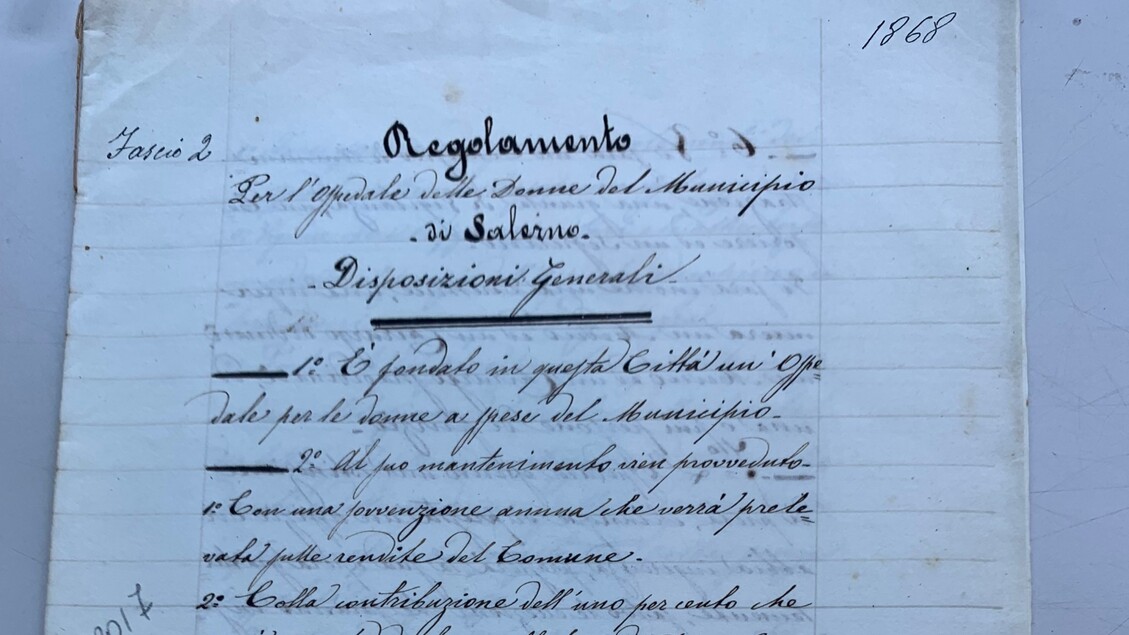 1868
Fascio 2
Regolamento
Per l'Ospedale delle Donne del Municipio
- di Salerno -
- Disposizioni Generali -
1.º È fondato in questa Città un' Ospe=
dale per le donne a spese del Municipio -
2.º Al suo mantenimento vien provveduto -
1.º Con una sovvenzione annua che verrà prele=
vata sulle rendite del Comune -
2.º Colla contribuzione dell'uno per cento che